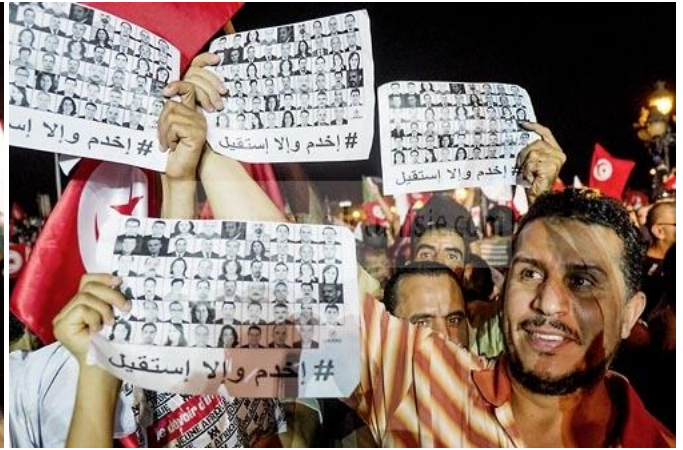 # إخدم وإلا إس
# إخدم وإلا إستقيل
# إخدم وإلا إستقيل
# إخدم وإلا إستقيل
JEUNE AFRIQUE